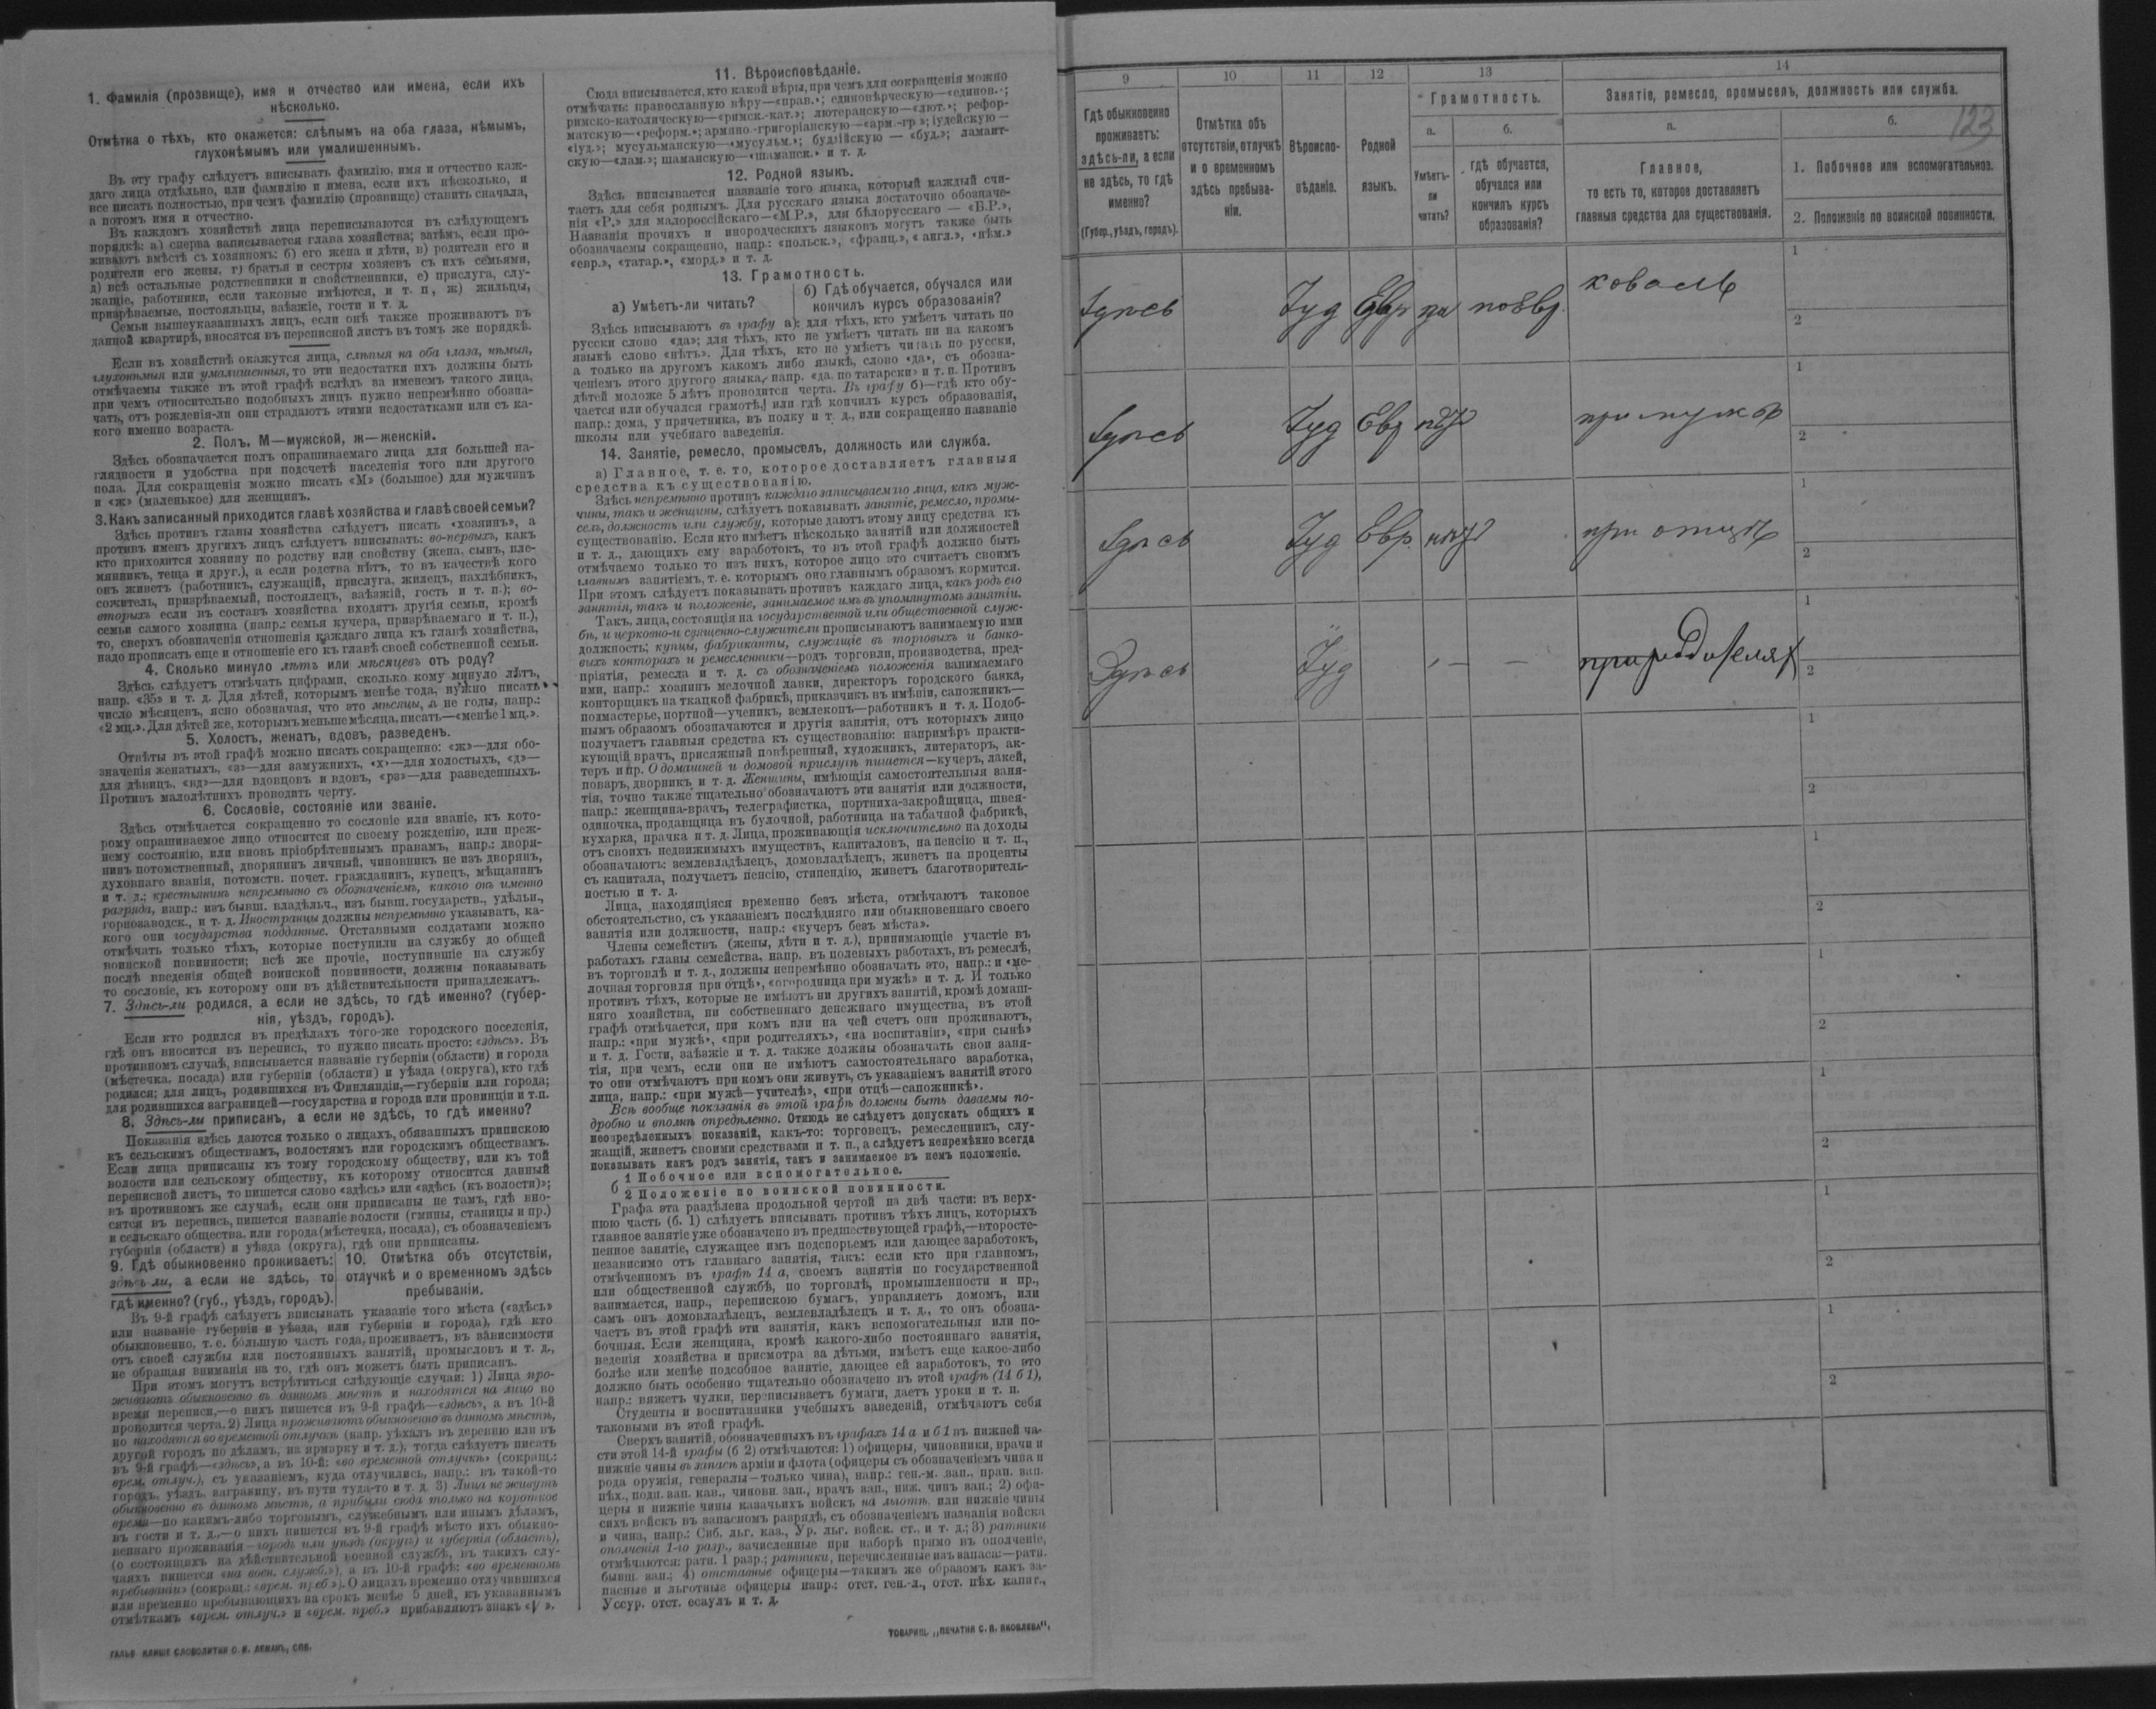 1. Фамилія (прозвище), имя и отчество или имена, если ихъ
нѣсколько.
Отмѣтка о тѣхъ, кто окажется: слѣпымъ на оба глаза, нѣмымъ,
глухонѣмымъ или умалишеннымъ.
Въ эту графу слѣдуетъ вписывать фамилію, имя и отчество каж-
даго лица отдѣльно, или фамилію и имена, если ихъ нѣсколько, и
все писать полностью, при чемъ фамилію (прозвище) ставить сначала,
а потомъ имя и отчество.
Въ каждомъ хозяйствѣ лица переписываются въ слѣдующемъ
порядкѣ: а) сперва записывается глава хозяйства; затѣмъ, если про-
живаютъ вмѣстѣ съ хозяиномъ: б) его жена и дѣти, в) родители его и
родители его жены, г) братья и сестры хозяевъ съ ихъ семьями,
д) всѣ остальные родственники и свойственники, е) прислуга, слу-
жащіе, работники, если таковые имѣются, и т. п, ж) жильцы,
призрѣваемые, постояльцы, заѣзжіе, гости и т. д.
Семьи вышеуказанныхъ лицъ, если онѣ также проживаютъ въ
данной квартирѣ, вносятся въ переписной листъ въ томъ же порядкѣ.
Если въ хозяйствѣ окажутся лица, слѣпыя на оба глаза, нѣмыя,
глухонѣмыя или умалишенныя, то эти недостатки ихъ должны быть
отмѣчаемы также въ этой графѣ вслѣдъ за именемъ такого лица,
при чемъ относительно подобныхъ лицъ нужно непремѣнно обозна-
чать, отъ рожденія-ли они страдаютъ этими недостатками или съ ка-
кого именно возраста.
2. Полъ, М—мужской, ж—женскій.
Здѣсь обозначается полъ опрашиваемаго лица для большей на-
глядности и удобства при подсчетѣ населенія того или другого
пола. Для сокращенія можно писать «М» (большое) для мужчинъ
и «ж» (маленькое) для женщинъ.
3. Какъ записанный приходится главѣ хозяйства и главѣ своей семьи?
Здѣсь противъ главы хозяйства слѣдуетъ писать «хозяинъ», а
противъ именъ другихъ лицъ слѣдуетъ вписывать: во-первыхъ, какъ
кто приходится хозяину по родству или свойству (жена, сынъ, пле-
мянникъ, теща и друг.), а если родства нѣтъ, то въ качествѣ кого
онъ живетъ (работникъ, служащій, прислуга, жилецъ, нахлѣбникъ,
сожитель, призрѣваемый, постоялецъ, заѣзжій, гость и т. п.); во-
вторыхъ если въ составъ хозяйства входятъ другія семьи, кромѣ
семьи самого хозяина (напр.: семья кучера, призрѣваемаго и т. п.),
то, сверхъ обозначенія отношенія каждаго лица къ главѣ хозяйства,
надо прописать еще и отношеніе его къ главѣ своей собственной семьи.
4. Сколько минуло лѣтъ или мѣсяцевъ отъ роду?
Здѣсь слѣдуетъ отмѣчать цифрами, сколько кому минуло лѣтъ,
напр. «35» и т. д. Для дѣтей, которымъ менѣе года, нужно писать
число мѣсяцевъ, ясно обозначая, что это мѣсяцы, а не годы, напр.:
«2 мц.». Для дѣтей же, которымъ меньше мѣсяца, писать—«менѣе 1 мц.».
5. Холостъ, женатъ, вдовъ, разведенъ.
Отвѣты въ этой графѣ можно писать сокращенно: «ж»—для обо-
значенія женатыхъ, «з»—для замужнихъ, «х»—для холостыхъ, «д»—
для дѣвицъ, «вд»—для вдовцовъ и вдовъ, «рз»—для разведенныхъ.
Противъ малолѣтнихъ проводить черту.
6. Сословіе, состояніе или званіе.
Здѣсь отмѣчается сокращенно то сословіе или званіе, къ кото-
рому опрашиваемое лицо относится по своему рожденію, или преж-
нему состоянію, или вновь пріобрѣтеннымъ правамъ, напр.: дворя-
нинъ потомственный, дворянинъ личный, чиновникъ не изъ дворянъ,
духовнаго званія, потомств. почет. гражданинъ, купецъ, мѣщанинъ
и т. д.; крестьянинъ непремѣнно съ обозначеніемъ, какого онъ именно
разряда, напр.: изъ бывш. владѣльч., изъ бывш. государств., удѣльн.,
горнозаводск., и т. д. Иностранцы должны непремѣнно указывать, ка-
кого они государства подданные. Отставными солдатами можно
отмѣчать только тѣхъ, которые поступили на службу до общей
воинской повинности; всѣ же прочіе, поступившіе на службу
послѣ введенія общей воинской повинности, должны показывать
то сословіе, къ которому они въ дѣйствительности принадлежатъ.
7. Здѣсь-ли родился, а если не здѣсь, то гдѣ именно? (губер-
нія, уѣздъ, городъ).
Если кто родился въ предѣлахъ того-же городского поселенія,
гдѣ онъ вносится въ перепись, то нужно писать просто: «здѣсь». Въ
противномъ случаѣ, вписывается названіе губерніи (области) и города
(мѣстечка, посада) или губерніи (области) и уѣзда (округа), кто гдѣ
родился; для лицъ, родившихся въ Финляндіи,—губерніи или города;
для родившихся заграницей—государства и города или провинціи и т.п.
8. Здѣсь-ли приписанъ, а если не здѣсь, то гдѣ именно?
Показанія здѣсь даются только о лицахъ, обязанныхъ припискою
къ сельскимъ обществамъ, волостямъ или городскимъ обществамъ.
Если лица приписаны къ тому городскому обществу, или къ той
волости или сельскому обществу, къ которому относится данный
переписной листъ, то пишется слово «здѣсь» или «здѣсь (къ волости)»;
въ противномъ же случаѣ, если они приписаны не тамъ, гдѣ вно-
сятся въ перепись, пишется названіе волости (гмины, станицы и пр.)
и сельскаго общества, или города (мѣстечка, посада), съ обозначеніемъ
губерніи (области) и уѣзда (округа), гдѣ они приписаны.
9. Гдѣ обыкновенно проживаетъ:
здѣсь-ли, а если не здѣсь, то
гдѣ именно? (губ., уѣздъ, городъ).
10. Отмѣтка объ отсутствіи,
отлучкѣ и о временномъ здѣсь
пребываніи.
Въ 9-й графѣ слѣдуетъ вписывать указаніе того мѣста («здѣсь»
или названіе губерніи и уѣзда, или губерніи и города), гдѣ кто
обыкновенно, т. е. большую часть года, проживаетъ, въ зависимости
отъ своей службы или постоянныхъ занятій, промысловъ и т. д.,
не обращая вниманія на то, гдѣ онъ можетъ быть приписанъ.
При этомъ могутъ встрѣтиться слѣдующіе случаи: 1) Лица про-
живаютъ обыкновенно въ данномъ мѣстѣ и находятся на лицо во
время переписи,—о нихъ пишется въ 9-й графѣ—«здѣсь», а въ 10-й
проводится черта. 2) Лица проживаютъ обыкновенно въ данномъ мѣстѣ,
но находятся во временной отлучкѣ (напр. уѣхалъ въ деревню или въ
другой городъ по дѣламъ, на ярмарку и т. д.), тогда слѣдуетъ писать
въ 9-й графѣ—«здѣсь», а въ 10-й: «во временной отлучкѣ» (сокращ.:
врем. отлуч.), съ указаніемъ, куда отлучились, напр.: въ такой-то
городъ, уѣздъ, заграницу, въ пути туда-то и т. д. 3) Лица не живутъ
обыкновенно въ данномъ мѣстѣ, а прибыли сюда только на короткое
время—по какимъ-либо торговымъ, служебнымъ или инымъ дѣламъ,
въ гости и т. д.,—о нихъ пишется въ 9-й графѣ мѣсто ихъ обыкно-
веннаго проживанія—городъ или уѣздъ (округъ) и губернія (область),
(о состоящихъ на дѣйствительной военной службѣ, въ такихъ слу-
чаяхъ пишется «на воен. служб.»), а въ 10-й графѣ: «во временномъ
пребываніи» (сокращ.: «врем. преб»). О лицахъ временно отлучившихся
или временно пребывающихъ на срокъ менѣе 5 дней, къ указаннымъ
отмѣткамъ «врем. отлуч.» и «врем. преб.» прибавляютъ знакъ «√».
11. Вѣроисповѣданіе.
Сюда вписывается, кто какой вѣры, при чемъ для сокращенія можно
отмѣчать: православную вѣру—«прав.»; единовѣрческую—«единов.»;
римско-католическую—«римск.-кат.»; лютеранскую—«лют.»; рефор-
матскую—«реформ.»; армяно.-григоріанскую—«арм.-гр»; іудейскую—
«іуд.»; мусульманскую—«мусульм.»; буддійскую — «буд.»; ламаит-
скую—«лам.»; шаманскую—«шаманск.» и т. д.
12. Родной языкъ.
Здѣсь вписывается названіе того языка, который каждый счи-
таетъ для себя роднымъ. Для русскаго языка достаточно обозначе-
нія «Р.» для малороссійскаго—«М.Р.», для бѣлорусскаго — «Б.Р.»,
Названія прочихъ и инородческихъ языковъ могутъ также быть
обозначаемы сокращенно, напр.: «польск.», «франц.», «англ.», «нѣм.»
«евр.», «татар.», «морд.» и т. д.
13. Грамотность.
а) Умѣетъ-ли читать?
б) Гдѣ обучается, обучался или
кончилъ курсъ образованія?
Здѣсь вписываютъ въ графу а): для тѣхъ, кто умѣетъ читать по
русски слово «да»; для тѣхъ, кто не умѣетъ читать ни на какомъ
языкѣ слово «нѣтъ». Для тѣхъ, кто не умѣетъ читать по русски,
а только на другомъ какомъ либо языкѣ, слово «да», съ обозна-
ченіемъ этого другого языка, напр. «да, по татарски» и т. п. Противъ
дѣтей моложе 5 лѣтъ проводится черта. Въ графу б)—гдѣ кто обу-
чается или обучался грамотѣ, или гдѣ кончилъ курсъ образованія,
напр.: дома, у причетника, въ полку и т. д., или сокращенно названіе
школы или учебнаго заведенія.
14. Занятіе, ремесло, промыселъ, должность или служба.
а) Главное, т. е. то, которое доставляетъ главныя
средства къ существованію.
Здѣсь непремѣнно противъ каждаго записываемаго лица, какъ муж-
чины, такъ и женщины, слѣдуетъ показывать занятіе, ремесло, промы-
селъ, должность или службу, которые даютъ этому лицу средства къ
существованію. Если кто имѣетъ нѣсколько занятій или должностей
и т. д., дающихъ ему заработокъ, то въ этой графѣ должно быть
отмѣчаемо только то изъ нихъ, которое лицо это считаетъ своимъ
главнымъ занятіемъ, т. е. которымъ оно главнымъ образомъ кормится.
При этомъ слѣдуетъ показывать противъ каждаго лица, какъ родъ его
занятія, такъ и положеніе, занимаемое имъ въ упомянутомъ занятіи.
Такъ, лица, состоящія на государственной или общественной служ-
бѣ, и церковно-и священно-служители прописываютъ занимаемую ими
должность; купцы, фабриканты, служащіе въ торговыхъ и банко-
выхъ конторахъ и ремесленники—родъ торговли, производства, пред-
пріятія, ремесла и т. д. съ обозначеніемъ положенія занимаемаго
ими, напр.: хозяинъ мелочной лавки, директоръ городского банка,
конторщикъ на ткацкой фабрикѣ, приказчикъ въ имѣніи, сапожникъ—
подмастерье, портной—ученикъ, землекопъ—работникъ и т. д. Подоб-
нымъ образомъ обозначаются и другія занятія, отъ которыхъ лицо
получаетъ главныя средства къ существованію: напримѣръ практи-
кующій врачъ, присяжный повѣренный, художникъ, литераторъ, ак-
теръ и пр. О домашней и домовой прислугѣ пишется—кучеръ, лакей,
поваръ, дворникъ и т. д. Женщины, имѣющія самостоятельныя заня-
тія, точно также тщательно обозначаютъ эти занятія или должности,
напр.: женщина-врачъ, телеграфистка, портниха-закройщица, швея-
одиночка, продавщица въ булочной, работница на табачной фабрикѣ,
кухарка, прачка и т. д. Лица, проживающія исключительно на доходы
отъ своихъ недвижимыхъ имуществъ, капиталовъ, на пенсію и т. п.,
обозначаютъ: землевладѣлецъ, домовладѣлецъ, живетъ на проценты
съ капитала, получаетъ пенсію, стипендію, живетъ благотворитель-
ностью и т. д.
Лица, находящіяся временно безъ мѣста, отмѣчаютъ таковое
обстоятельство, съ указаніемъ послѣдняго или обыкновеннаго своего
занятія или должности, напр.: «кучеръ безъ мѣста».
Члены семействъ (жены, дѣти и т. д.), принимающіе участіе въ
работахъ главы семейства, напр. въ полевыхъ работахъ, въ ремеслѣ,
въ торговлѣ и т. д., должны непремѣнно обозначать это, напр.: и «ме-
лочная торговля при отцѣ», «огородница при мужѣ» и т. д. И только
противъ тѣхъ, которые не имѣютъ ни другихъ занятій, кромѣ домаш-
няго хозяйства, ни собственнаго денежнаго имущества, въ этой
графѣ отмѣчается, при комъ или на чей счетъ они проживаютъ,
напр.: «при мужѣ», «при родителяхъ», «на воспитаніи», «при сынѣ»
и т. д. Гости, заѣзжіе и т. д. также должны обозначать свои заня-
тія, при чемъ, если они не имѣютъ самостоятельнаго заработка,
то они отмѣчаютъ при комъ они живутъ, съ указаніемъ занятій этого
лица, напр.: «при мужѣ—учителѣ», «при отцѣ—сапожникѣ».
Всѣ вообще показанія въ этой графѣ должны быть даваемы по-
дробно и вполнѣ опредѣленно. Отнюдь не слѣдуетъ допускать общихъ и
неопредѣленныхъ показаній, какъ-то: торговецъ, ремесленникъ, слу-
жащій, живетъ своими средствами и т. п., а слѣдуетъ непремѣнно всегда
показывать какъ родъ занятія, такъ и занимаемое въ немъ положеніе.
б 1 Побочное или вспомогательное.
2 Положеніе по воинской повинности.
Графа эта раздѣлена продольной чертой на двѣ части: въ верх-
нюю часть (б. 1) слѣдуетъ вписывать противъ тѣхъ лицъ, которыхъ
главное занятіе уже обозначено въ предшествующей графѣ,—второсте-
пенное занятіе, служащее имъ подспорьемъ или дающее заработокъ,
независимо отъ главнаго занятія, такъ: если кто при главномъ,
отмѣченномъ въ графѣ 14 а, своемъ занятіи по государственной
или общественной службѣ, по торговлѣ, промышленности и пр.,
занимается, напр., перепискою бумагъ, управляетъ домомъ, или
самъ онъ домовладѣлецъ, землевладѣлецъ и т. д., то онъ обозна-
чаетъ въ этой графѣ эти занятія, какъ вспомогательныя или по-
бочныя. Если женщина, кромѣ какого-либо постояннаго занятія,
веденія хозяйства и присмотра за дѣтьми, имѣетъ еще какое-либо
болѣе или менѣе подсобное занятіе, дающее ей заработокъ, то это
должно быть особенно тщательно обозначено въ этой графѣ (14 б 1),
напр.: вяжетъ чулки, переписываетъ бумаги, даетъ уроки и т. п.
Студенты и воспитанники учебныхъ заведеній, отмѣчаютъ себя
таковыми въ этой графѣ.
Сверхъ занятій, обозначенныхъ въ графахъ 14 а и б 1 въ нижней ча-
сти этой 14-й графы (б 2) отмѣчаются: 1) офицеры, чиновники, врачи и
нижніе чины въ запасѣ арміи и флота (офицеры съ обозначеніемъ чина и
рода оружія, генералы—только чина), напр.: ген.-м. зап., прап. зап.
пѣх., подп. зап. кав., чиновн. зап., врачъ зап., ниж. чинъ зап.; 2) офи-
церы и нижніе чины казачьихъ войскъ на льготѣ, или нижніе чины
сихъ войскъ въ запасномъ разрядѣ, съ обозначеніемъ названія войска
и чина, напр.: Сиб. льг. каз., Ур. льг. войск. ст., и т. д.; 3) ратники
ополченія 1-го разр., зачисленные при наборѣ прямо въ ополченіе,
отмѣчаются: ратн. 1 разр.; ратники, перечисленные изъ запаса:—ратн.
бывш. зап.; 4) отставные офицеры—такимъ же образомъ какъ за-
пасные и льготные офицеры напр.: отст. ген.-л., отст. пѣх. капит.,
Уссур. отст. есаулъ и т. д.
ГАЛЬВ КЛИШЕ СЛОВОЛИТНИ О. И. ЛЕМАНЪ, СПБ.
ТОВАРИЩ. „ПЕЧАТНЯ С. П. ЯКОВЛЕВА“,
9 10 11 12 13 14
Гдѣ обыкновенно
проживаетъ:
здѣсь-ли, а если
не здѣсь, то гдѣ
именно?
(Губер., уѣздъ, городъ).
Отмѣтка объ
отсутствіи, отлучкѣ
и о временномъ
здѣсь пребыва-
ніи.
Вѣроиспо-
вѣданіе.
Родной
языкъ.
Грамотность.
а.
Умѣетъ-
ли
читать?
б.
гдѣ обучается,
обучался или
кончилъ курсъ
образованія?
Занятіе, ремесло, промыселъ, должность или служба.
а.
Главное,
то есть то, которое доставляетъ
главныя средства для существованія.
б.
123
1. Побочное или вспомогательное.
2. Положеніе по воинской повинности.
Здѣсь Іуд Евр да коваль
1
2
Здѣсь Іуд Евр нѣт при мужѣ
1
2
Здѣсь Іуд Евр. нѣт при отцѣ
1
2
Здѣсь Іуд — — при родителях
1
2
1
2
1
2
1
2
1
2
1
2
1
2